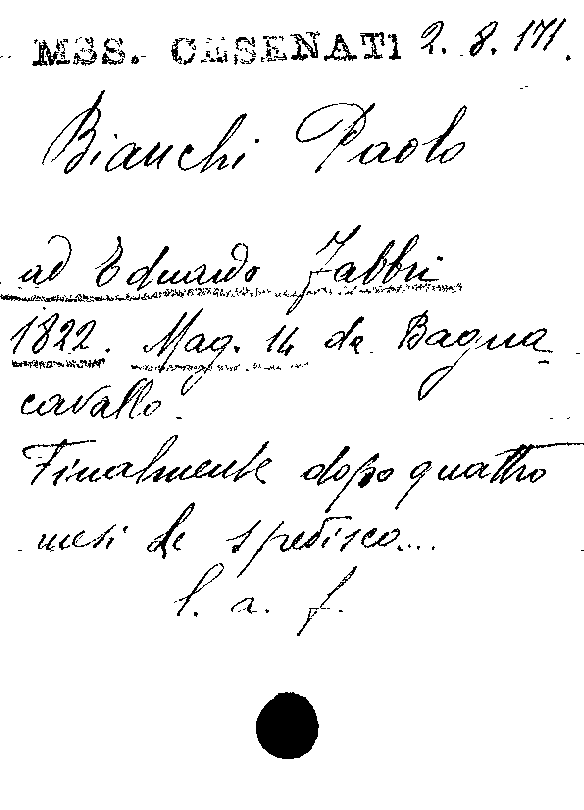 MSS. CESENATI 2. 8. 171.
Bianchi Paolo
ad Eduardo Fabbri
1822. Mag. 14 da Bagna
cavallo.
Finalmente dopo quattro
mesi le spedisco...
l. a. f.